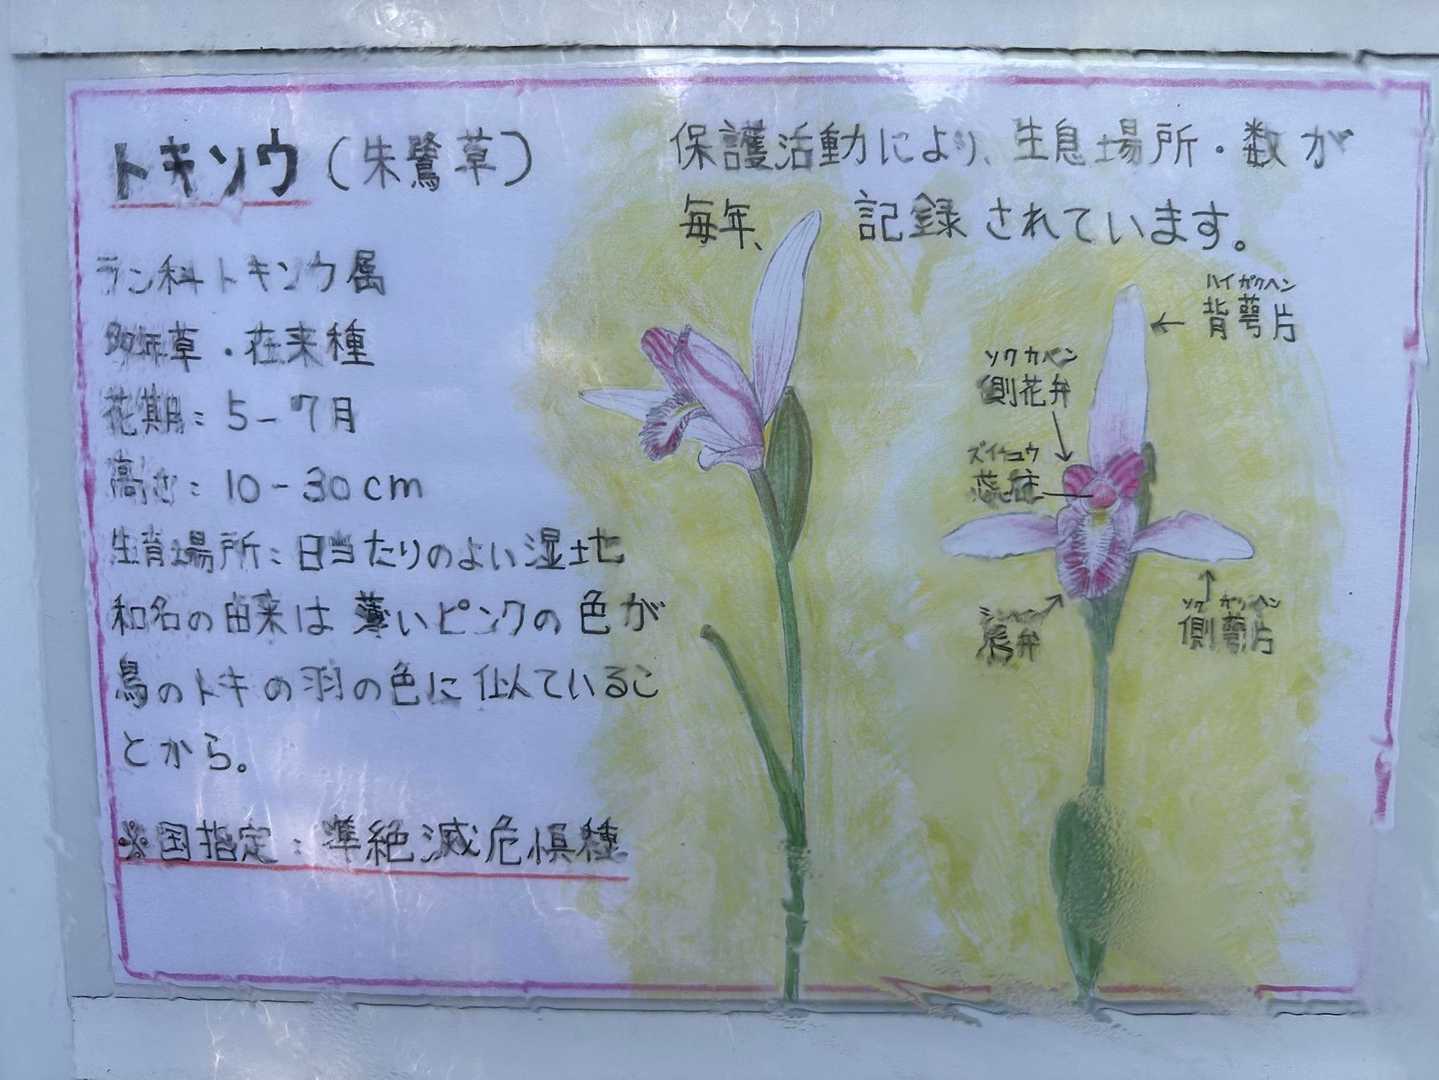 トキソウ（朱鷺草）
ラン科トキソウ属
多年草・在来種
花期：5-7月
高さ：10-30cm
生育場所：日当たりのよい湿地
和名の由来は薄いピンクの色が
鳥のトキの羽の色に似ているこ
とから。
※国指定：準絶滅危惧種
保護活動により、生息場所・数が
毎年、記録されています。
ハイガクヘン
背萼片
ソクカベン
側花弁
ズイチュウ
蕊柱
ソクガクヘン
側萼片
シンベン
唇弁